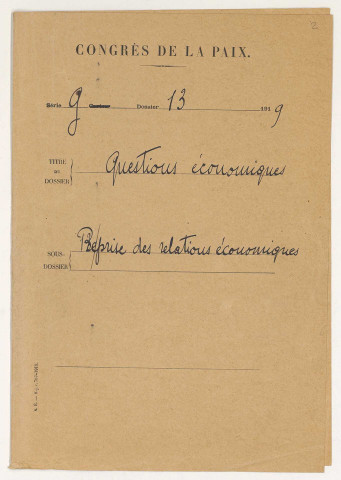 CONGRÈS DE LA PAIX.
Série G Dossier 13 1919
TITRE DU DOSSIER Questions économiques
SOUS-DOSSIER Reprise des relations économiques